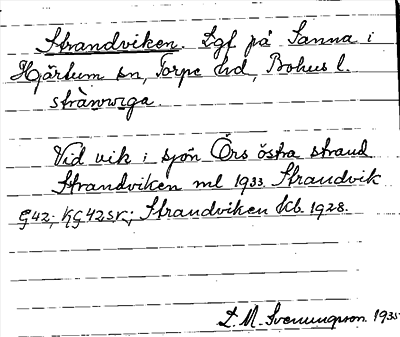 Strandviken. Lgf på Sanna i
Hjärtum sn, Torpe hd, Bohus l.
strànvviga.
Vid vik i sjön Örs östra strand
Strandviken ml 1933. Strandvik
G42; KG42sv; Strandviken Kb. 1928.
D. M. Svenungsson. 1935